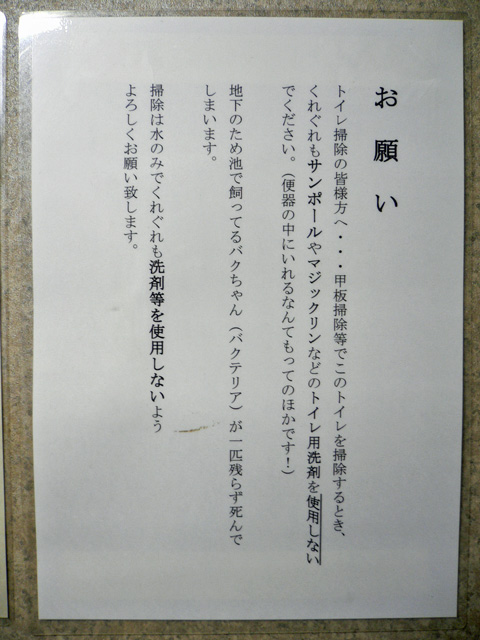 お願い
トイレ掃除の皆様方へ・・・甲板掃除等でこのトイレを掃除するとき、
くれぐれもサンポールやマジックリンなどのトイレ用洗剤を使用しない
でください。（便器の中にいれるなんてもってのほかです！）
地下のため池で飼ってるバクちゃん（バクテリア）が一匹残らず死んで
しまいます。
掃除は水のみでくれぐれも洗剤等を使用しないよう
よろしくお願い致します。